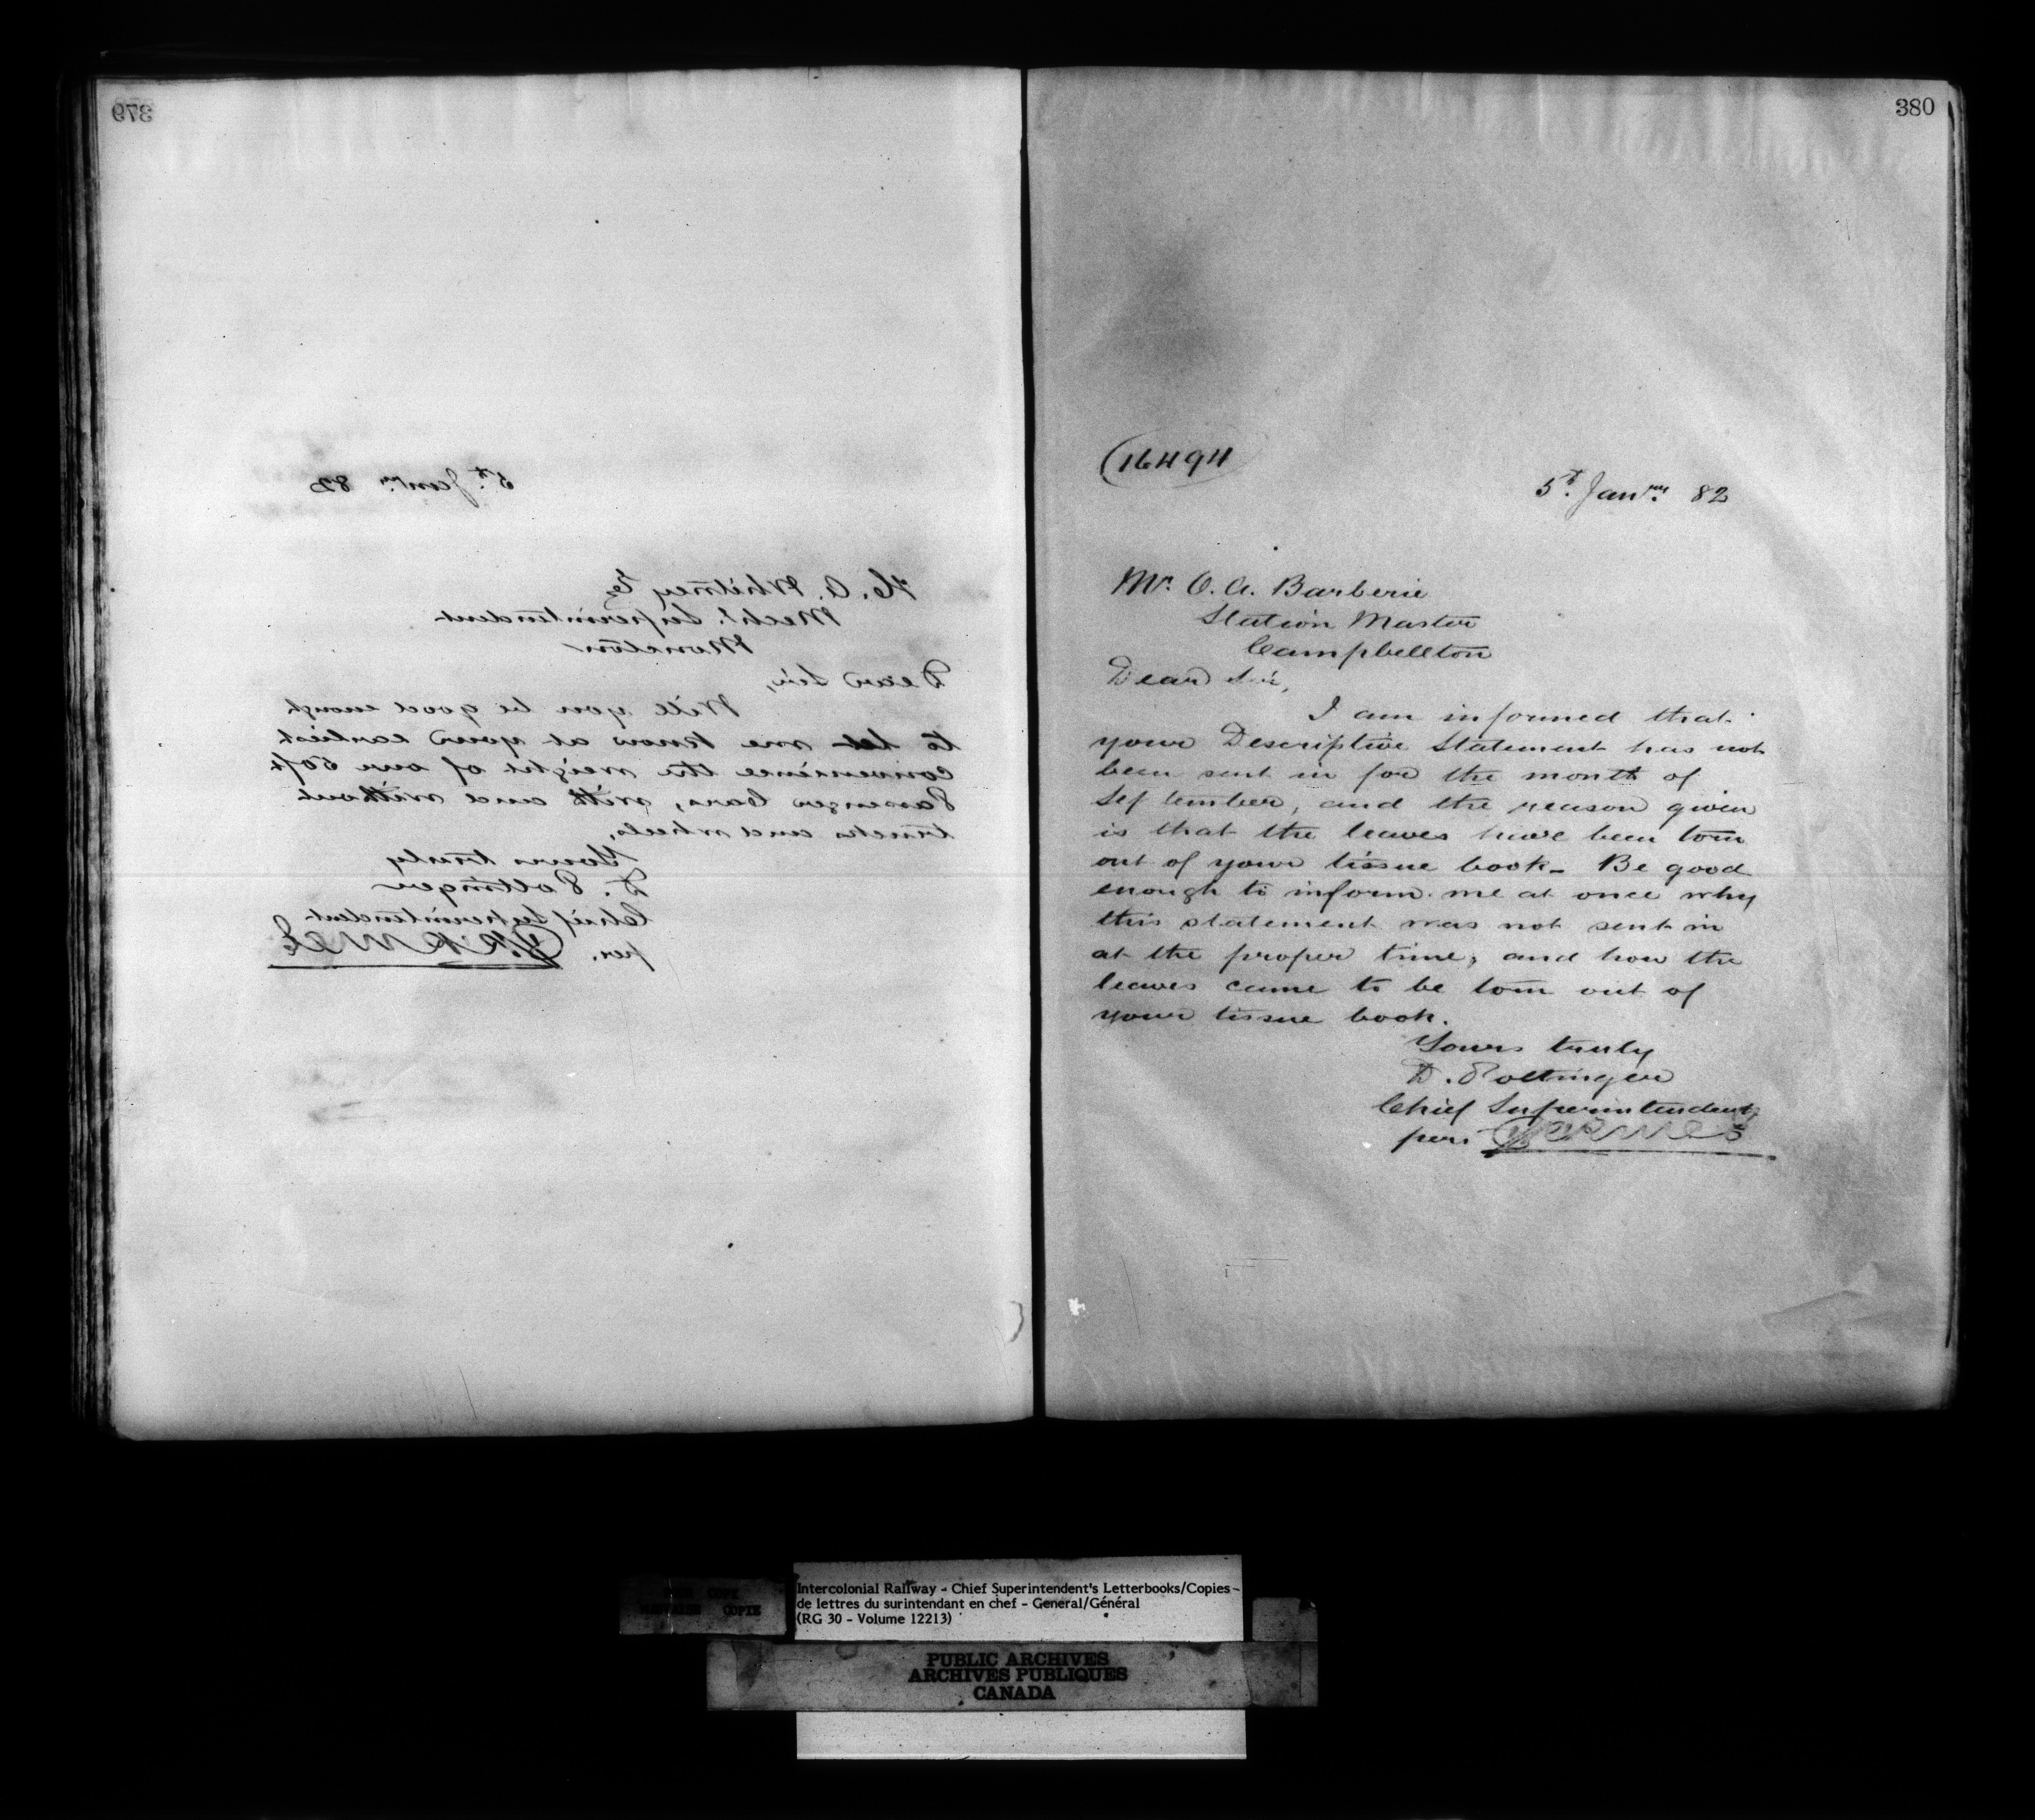 379
5th Janry 82
H. A. Whitney Eq
Mechl. Superintendent
Moncton
Dear Sir,
Will you be good enough
to let me know at your earliest
convenience the weight of our 50 ft
Passenger Cars, with and without
trucks and wheels,
Yours truly
D. Pottinger
Chief Superintendent
per.
380
(16494
5th Janry 82
Mr. O. A. Barberie
Station Master
Campbellton
Dear Sir,
I am informed that
your Descriptive Statement has not
been sent in for the month of
September, and the reason given
is that the leaves have been torn
out of your tissue book - Be good
enough to inform me at once why
this statement was not sent in
at the proper time, and how the
leaves came to be torn out of
your tissue book.
Yours truly
D. Pottinger
Chief Superintendent
per
COPY
COPIE
Intercolonial Railway - Chief Superintendent's Letterbooks/Copies -
de lettres du surintendant en chef - General/Général
(RG 30 - Volume 12213)
PUBLIC ARCHIVES
ARCHIVES PUBLIQUES
CANADA